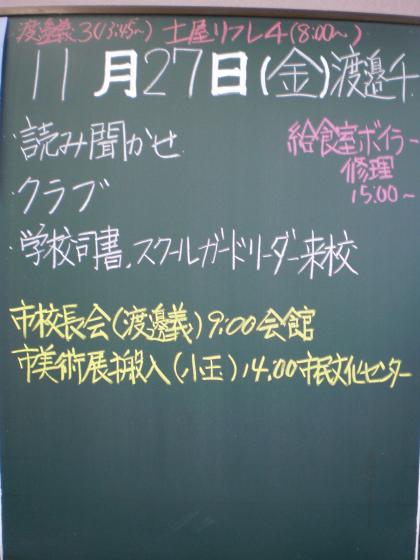 渡邊義3(13:45~) 土屋リフレ4(8:00~)
11月27日(金)渡邉千
読み聞かせ
クラブ
学校司書、スクールガードリーダー来校
給食室ボイラー
修理
15:00~
市校長会(渡邊義)9:00会館
市美術展搬入(小玉)14:00市民文化センター